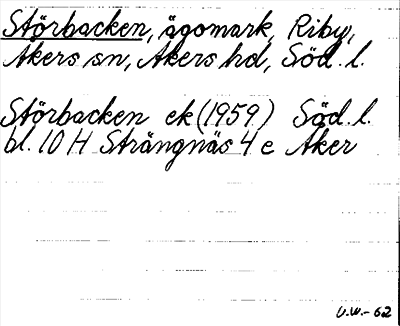 Störbacken, ägomark, Riby,
Åkers sn, Åkers hd, Söd. l.
Störbacken ek (1959) Söd. l.
bl. 10 H Strängnäs 4 e Åker
U.W.-62